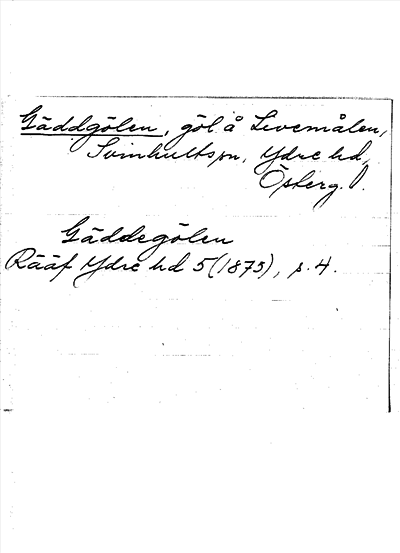 Gäddgölen, göl å Livemålen,
Svinhults sn, Ydre hd,
Österg.
Gäddegölen
Rääf Ydre hd 5 (1875), s. 4.